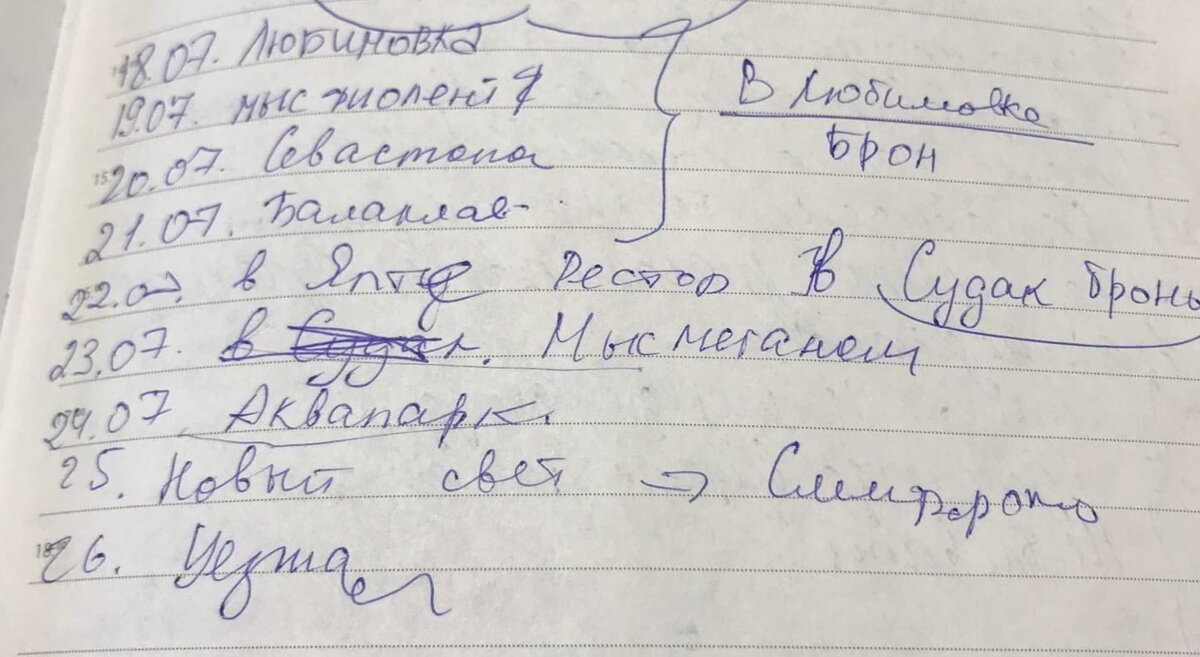 18.07. Любиновка
19.07. мыс Фиолент
В Любимовке
Брон
20.07. Севастопо
21.07. Балаклав-
22.07. в Ялте Рестор В Судак Бронь
23.07. в Судак. Мыс меганом
24.07. Аквапарк.
25. Новый свет → Симферопо
26. Уезжа